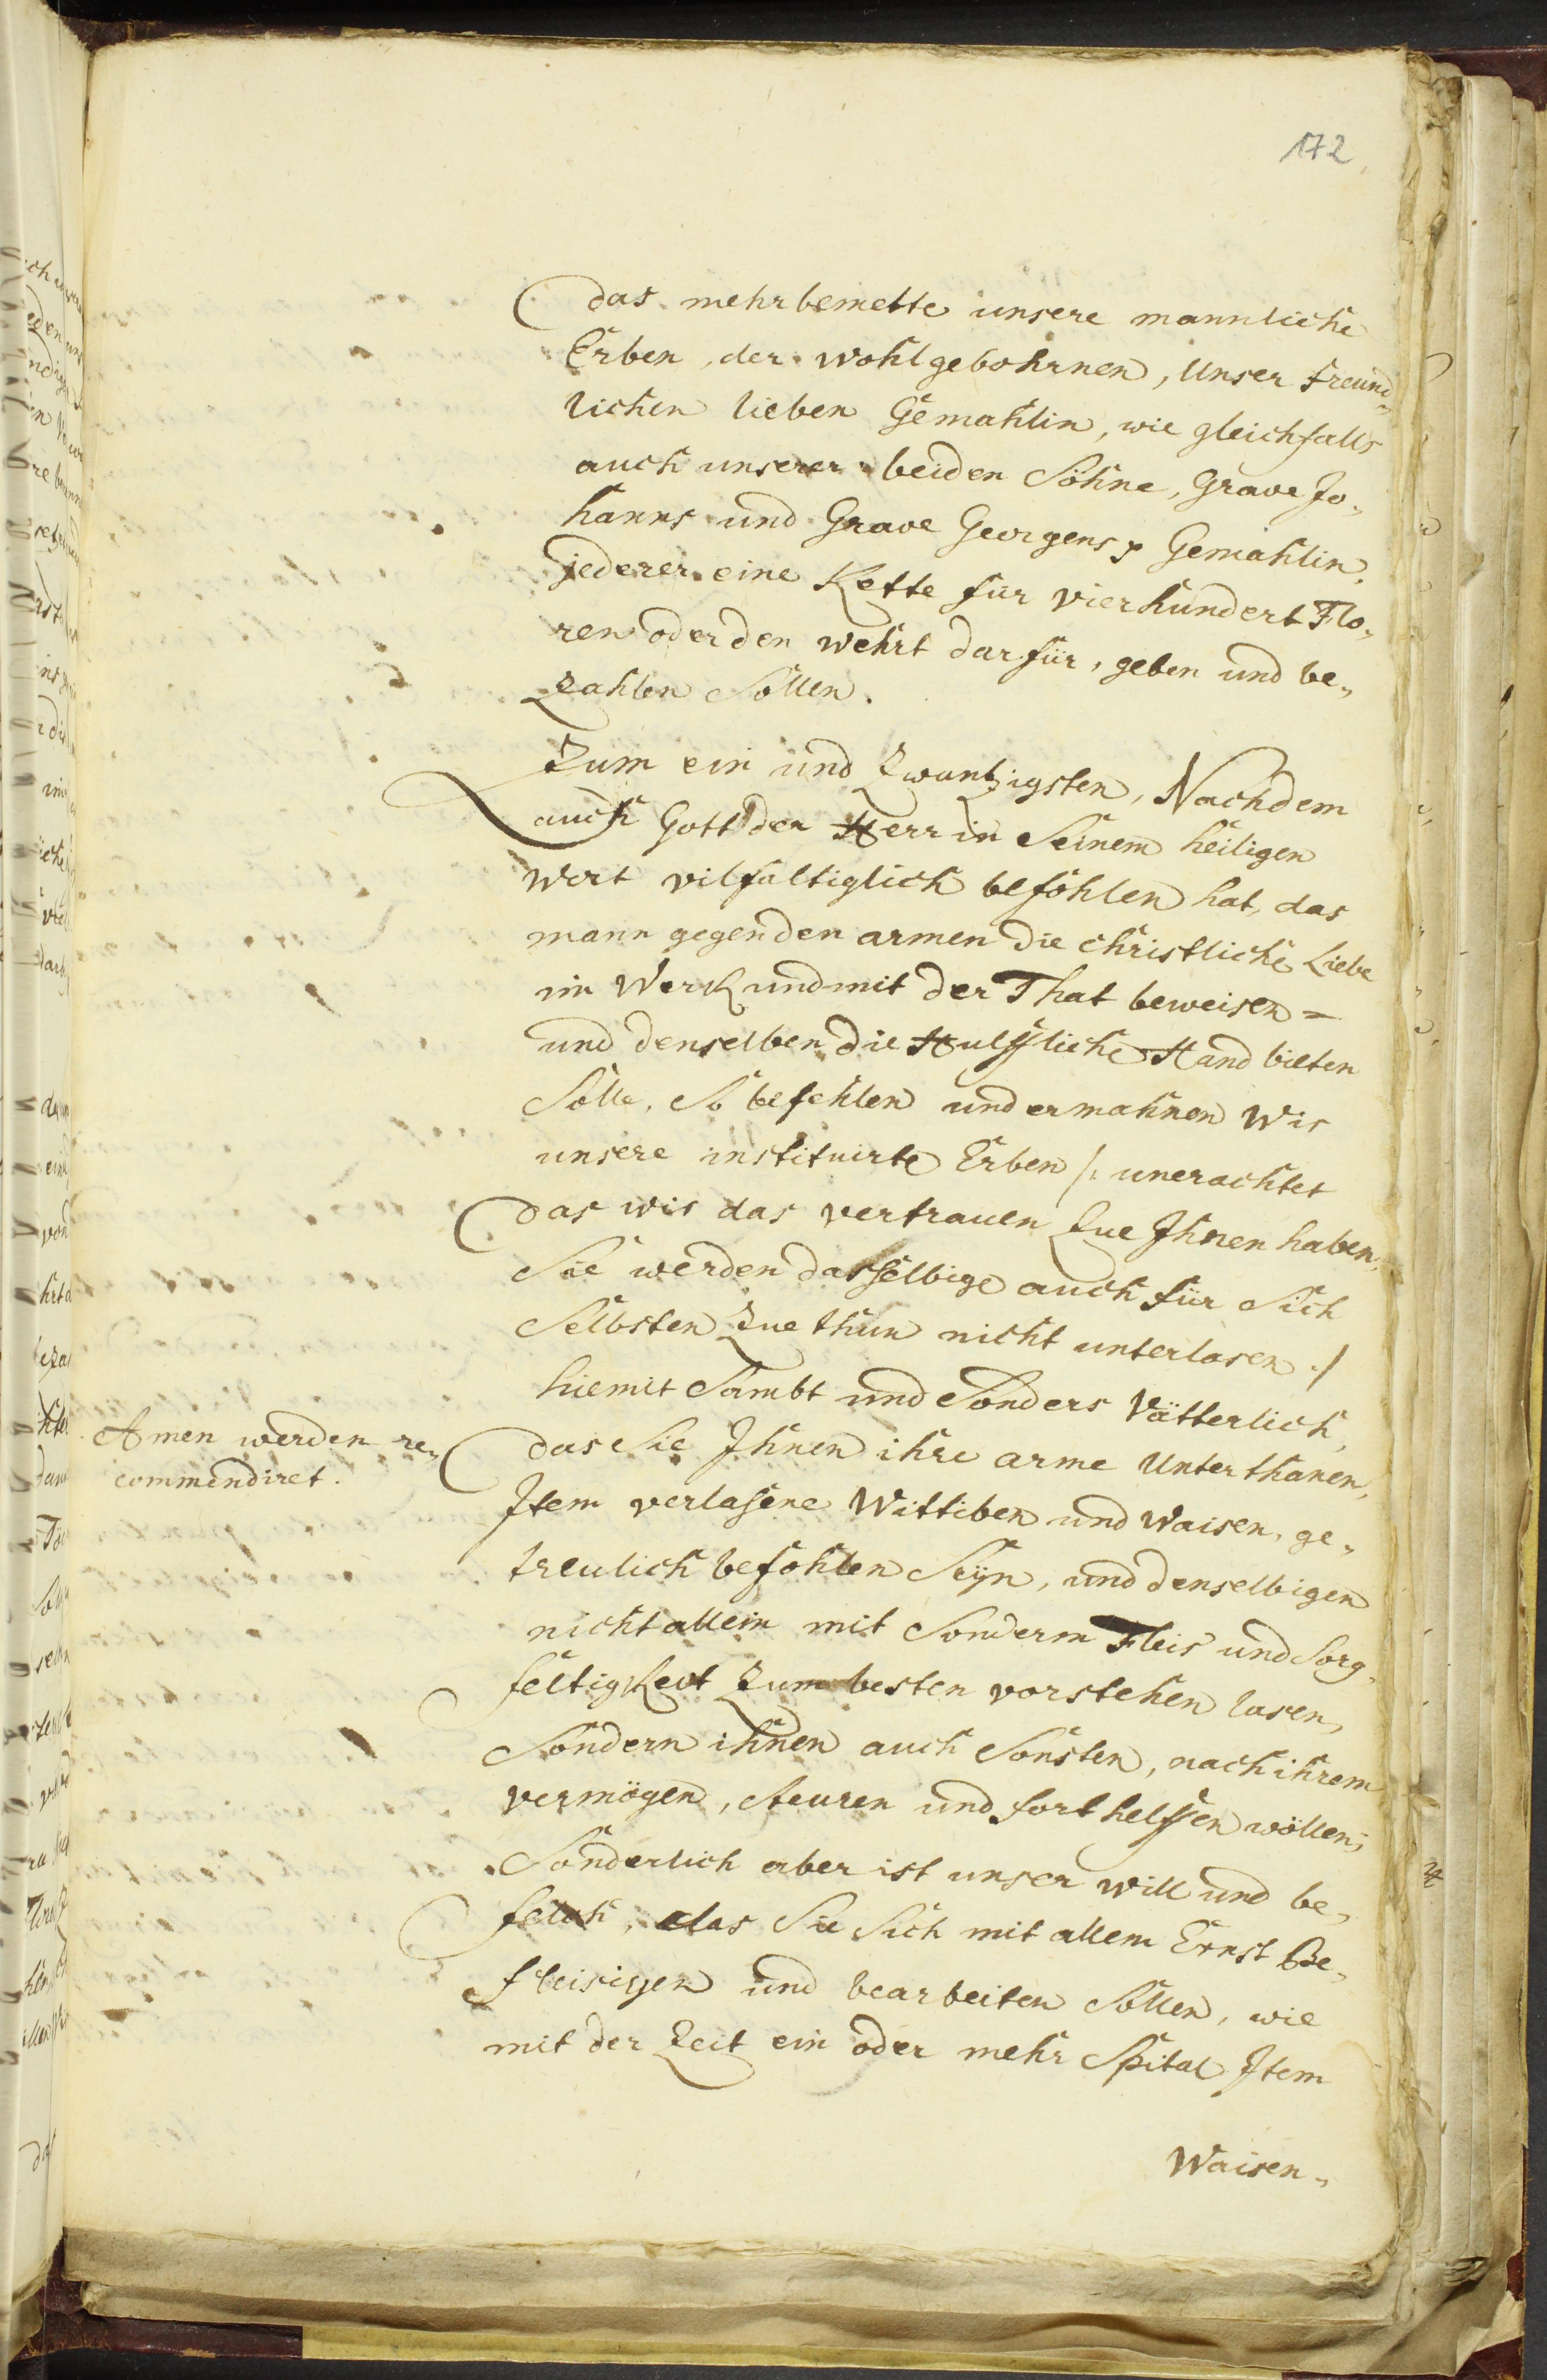 172
das mehrbemelte unsere mannliche
Erben, der wohlgebohrnen, Unser freund„
lichen lieben Gemahlin, wie gleichfalls
auch unserer beiden Söhne, Grave Jo„
hanns und Grave Georgens Gemahlin,
jederer eine Kette für vierhundert Flo„
ren oder den wehrt darfür, geben und be„
zahlen Sollen.
Zum ein und zwantzigsten, Nachdem
auch Gott der Herr in Seinem heiligen
Wort vilfältiglich befohlen hat, das
mann gegen den armen die christliche Liebe
im Werck und mit der That beweisen =
und denselben die Hulffliche Hand bieten
Solle, So befehlen und ermahnen Wir
unsere instituirte Erben /: unerachtet
das wir das vertrauen zue Ihnen haben,
Sie werden dasselbige auch für Sich
Selbsten zue thun nicht unterlasen :/
hiemit Sambt und Sonders Vätterlich,
das Sie Ihnen ihre arme Unterthanen,
Item verlasene Wittiben und Waisen, ge„
treulich befohlen Seyn, und denselbigen
nicht allein mit Sonderm Fleis und Sorg„
feltigkeit zum besten vorstehen lasen,
Sondern ihnen auch Sonsten, nach ihrem
vermögen, steuren und forthelffen wöllen;
Sonderlich aber ist unser will und be„
felch, das Sie Sich mit allem Ernst Be„
fleisigen und bearbeiten Sollen, wie
mit der Zeit ein oder mehr Spital Item
Waisen„
Armen werden re„
commendiret.